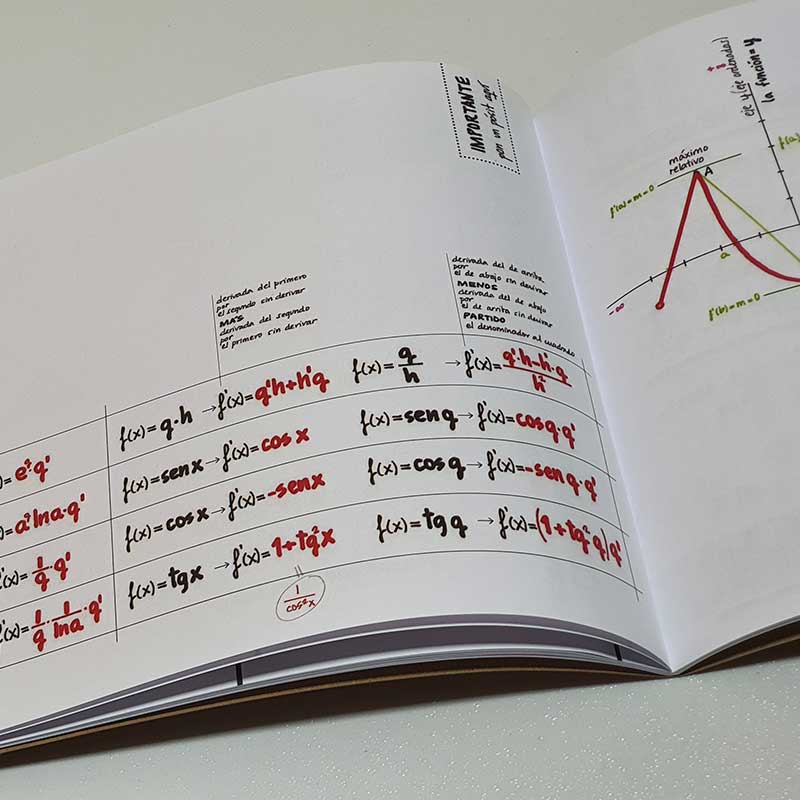 IMPORTANTE
pon un pósit aquí
derivada del primero
por
el segundo sin derivar
MÁS
derivada del segundo
por
el primero sin derivar
derivada del de arriba
por
el de abajo sin derivar
MENOS
derivada del de abajo
por
el de arriba sin derivar
PARTIDO
el denominador al cuadrado
f(x)=g·h →f'(x)=g'h+h'g f(x)=g/h →f'(x)=g'·h-h'·g/h²
)=e^g·g' f(x)=sen x→f'(x)=cos x f(x)=sen g→f'(x)=cos g·g'
)=a^g ln a·g' f(x)=cos x→f'(x)=-sen x f(x)=cos g→f'(x)=-sen g·g'
f'(x)=1/g·g' f(x)=tg x →f'(x)=1+tg²x f(x)=tg g →f'(x)=(1+tg²g)g'
f'(x)=1/g·1/ln a·g'
1/cos²x
+∞
eje y (eje ordenadas)
la función=y
máximo
relativo
A
f(a)
f'(a)=m=0
a
-∞
f'(b)=m=0